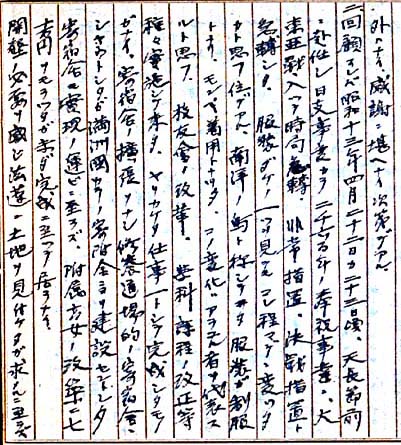 外ハナイ感謝ニ堪ヘナイ次第デアル
回顧スレバ昭和十三年四月二十二日カ二十三日頃、天長節前
ニ赴任シ日支事変カラ二千六百年ノ奉祝事業、大
東亜戦へト時局急轉非常措置、決戦措置ト
急轉シタ、服装ダケ一ツ見テモコレ程マデ変ッタ
カト思フ位デアル、南洋ノ鳥ト称シテヰタ服装ガ制服
トナリ、モンペ着用トナッタ、コノ変化ハアラユル者ノ代表ス
ルト思フ、校友會ノ改革、学科課程ノ改正等
種々実施シテ来タ、ヤリカケタ仕事一トシテ完成シタモノ
ガナイ。寄宿舎ノ擴張、ナシ修養道場的ノ寄宿舎
シヤウトシタガ満洲國カラノ寄附金ニヨリ建設セントシタ
寄宿舎モ実現ノ運ビニ至ラズ、附属高女ノ改築ニ七
吉円ヲモラッタガ未ダ完成ニ至ッテ居ラナイ、
開墾ノ必要ヲ感ジ法蓮ニ土地ヲ見付ケタガ求ムルニ至ラ